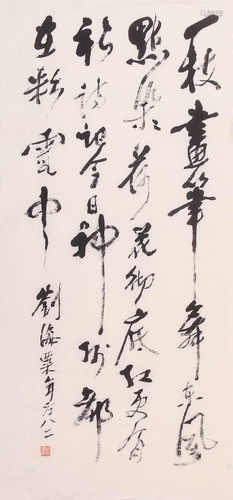 一枝畫筆舞東風
點染荷花徹底紅更有
新詩記今日神州都
在彩霞中
劉海粟年方八二